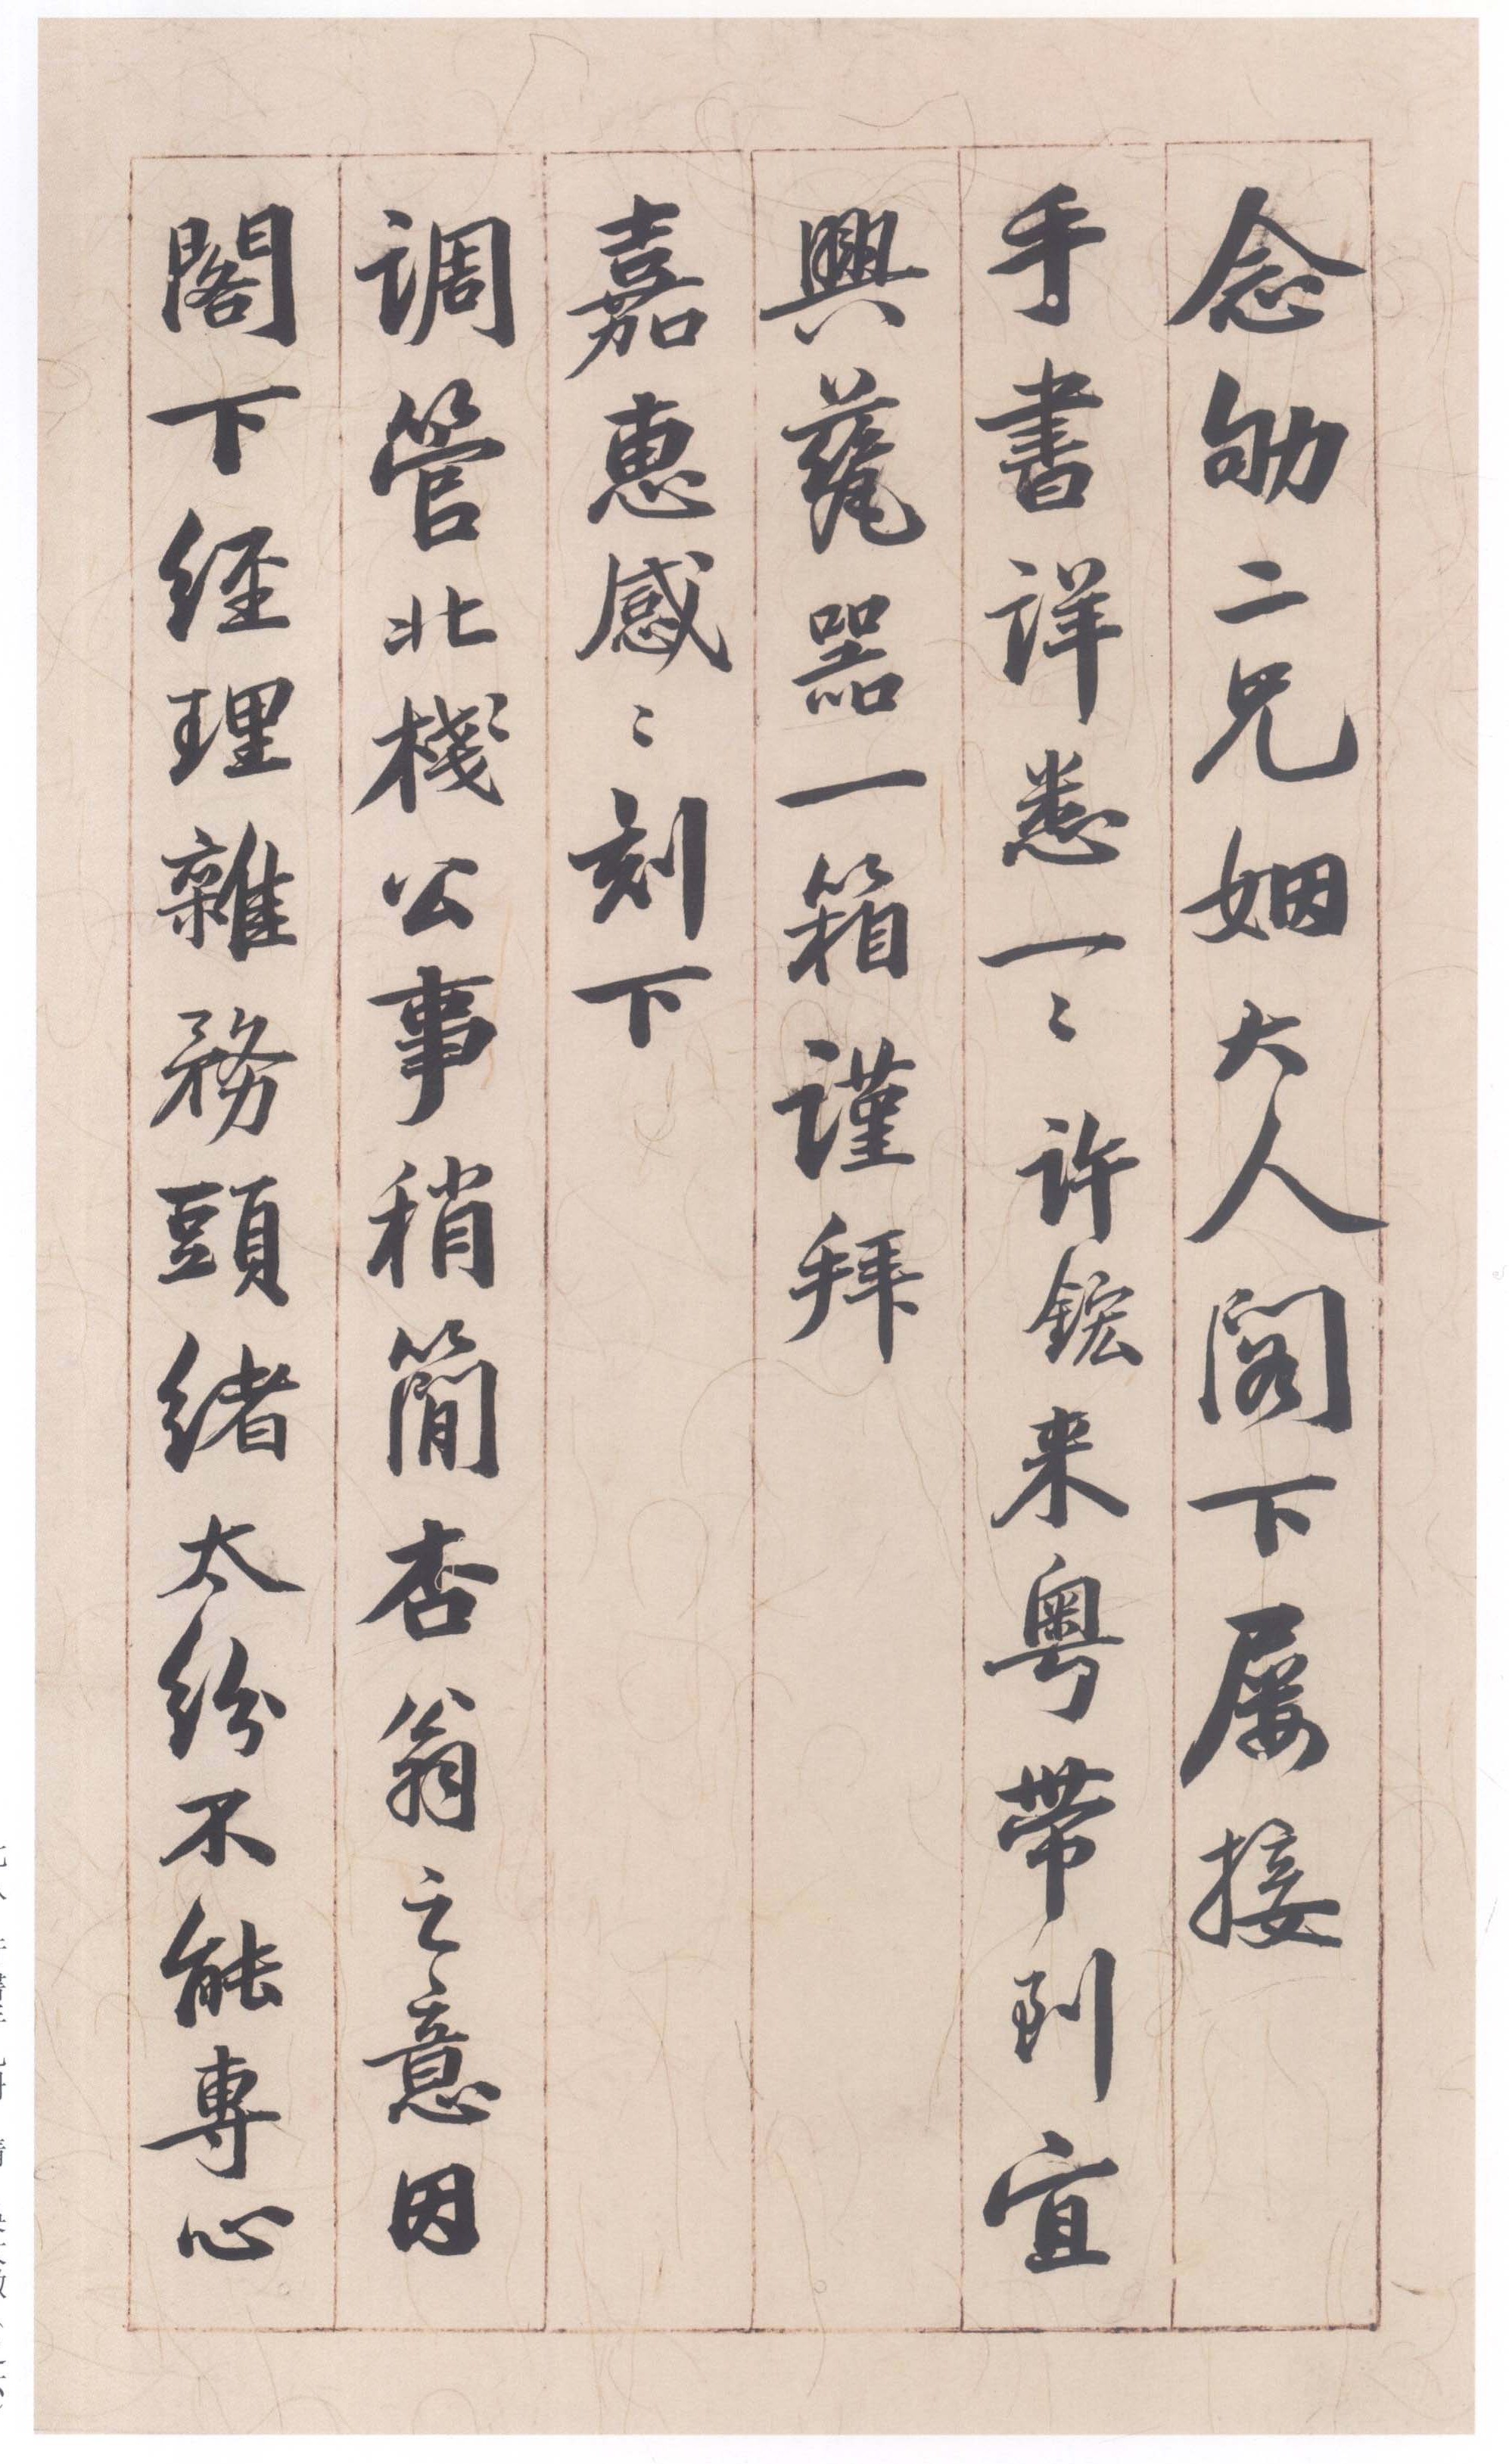 念劬二兄姻大人閣下屢接
手書詳悉一〻許鋐来粤帶到宜
興甆器一箱謹拜
嘉惠感〻刻下
調管北棧公事稍簡杏翁之意因
閣下經理雜務頭緒太紛不能專心